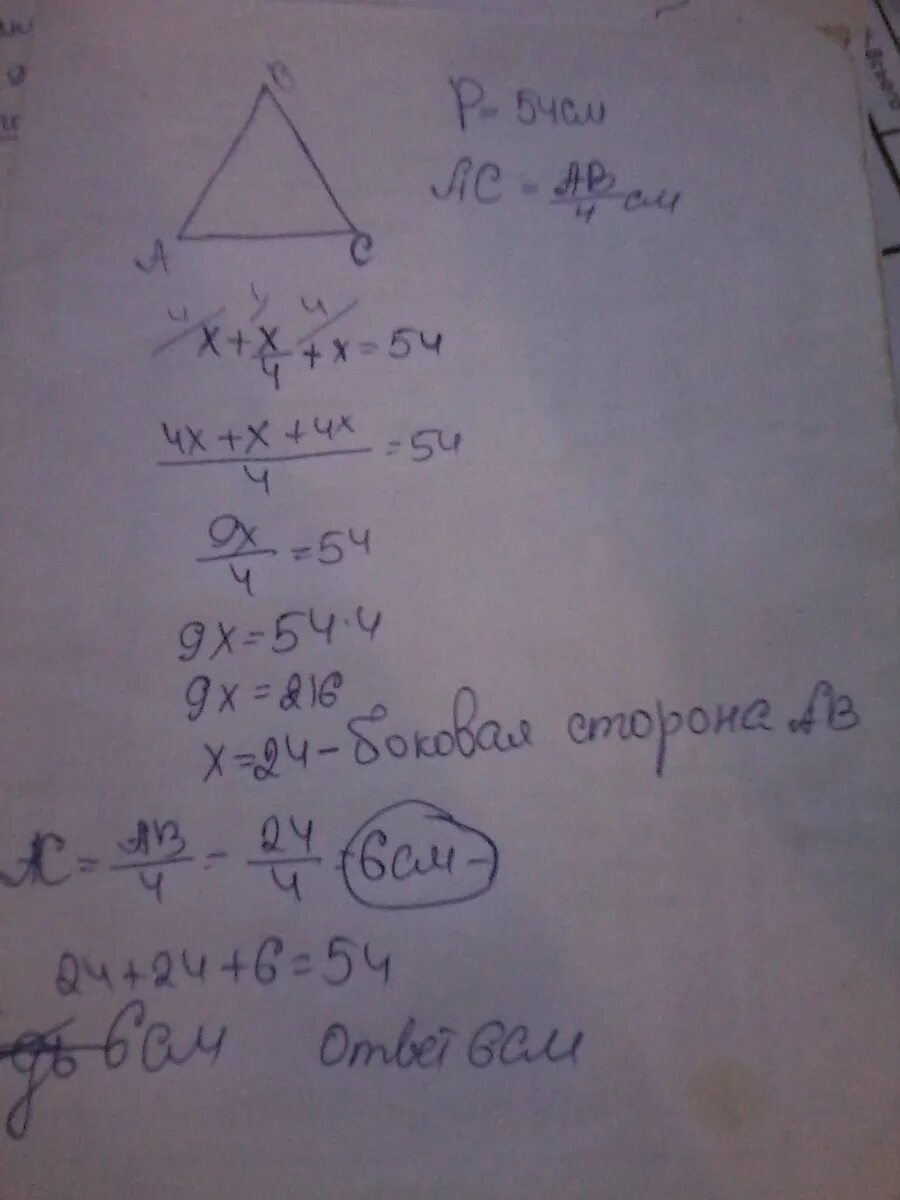 B
P = 54 см
AC = AB/4 см
A C
4 1 4
x + x/4 + x = 54
4x + x + 4x / 4 = 54
9x/4 = 54
9x = 54 · 4
9x = 216
x = 24 - боковая сторона AB
AC = AB/4 = 24/4 = 6 см -
24 + 24 + 6 = 54
6 см Ответ 6 см